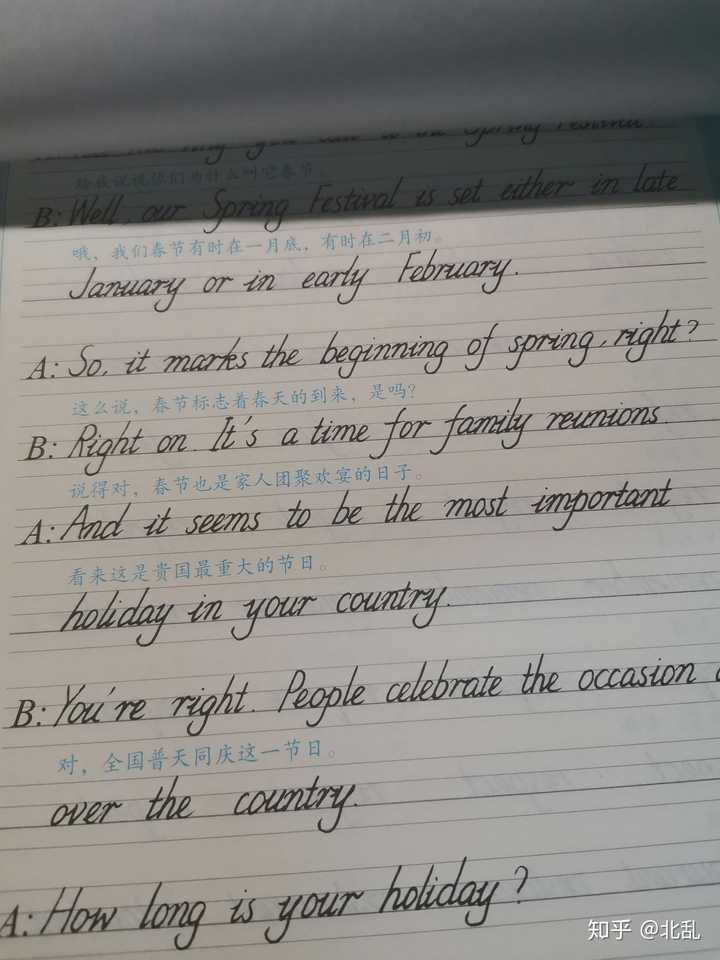 the Spring Festival.
给我说说你们为什么叫它春节。
B: Well, our Spring Festival is set either in late
哦，我们春节有时在一月底，有时在二月初。
January or in early February.
A: So, it marks the beginning of spring, right?
这么说，春节标志着春天的到来，是吗？
B: Right on. It's a time for family reunions.
说得对，春节也是家人团聚欢宴的日子。
A: And it seems to be the most important
看来这是贵国最重大的节日。
holiday in your country.
B: You're right. People celebrate the occasion
对，全国普天同庆这一节日。
over the country.
A: How long is your holiday?
知乎 @北乱